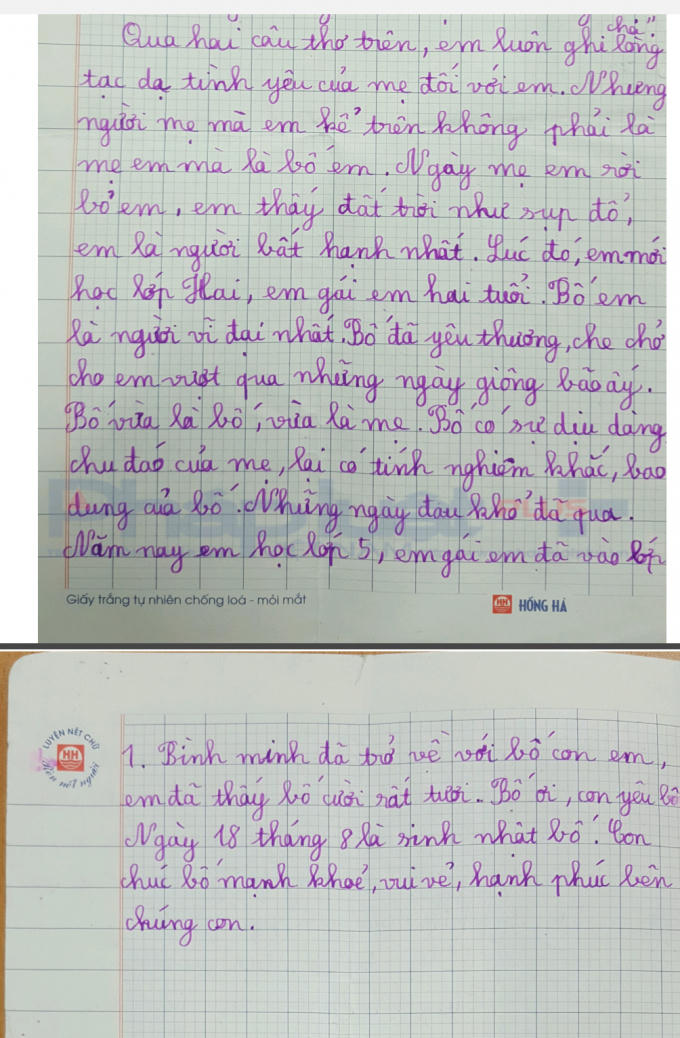 chả".
Qua hai câu thơ trên, em luôn ghi lòng
tạc dạ tình yêu của mẹ đối với em. Nhưng
người mẹ mà em kể trên không phải là
mẹ em mà là bố em. Ngày mẹ em rời
bỏ em, em thấy đất trời như sụp đổ,
em là người bất hạnh nhất. Lúc đó, em mới
học lớp Hai, em gái em hai tuổi. Bố em
là người vĩ đại nhất. Bố đã yêu thương, che chở
cho em vượt qua những ngày giông bão ấy.
Bố vừa là bố, vừa là mẹ. Bố có sự dịu dàng
chu đáo của mẹ, lại có tính nghiêm khắc, bao
dung của bố. Những ngày đau khổ đã qua.
Năm nay em học lớp 5, em gái em đã vào lớp
Giấy trắng tự nhiên chống loá - mỏi mắt
HH HỒNG HÀ
LUYỆN NÉT CHỮ
HH
Rèn nết người
1. Bình minh đã trở về với bố con em,
em đã thấy bố cười rất tươi. Bố ơi, con yêu bố
Ngày 18 tháng 8 là sinh nhật bố. Con
chúc bố mạnh khoẻ, vui vẻ, hạnh phúc bên
chúng con.